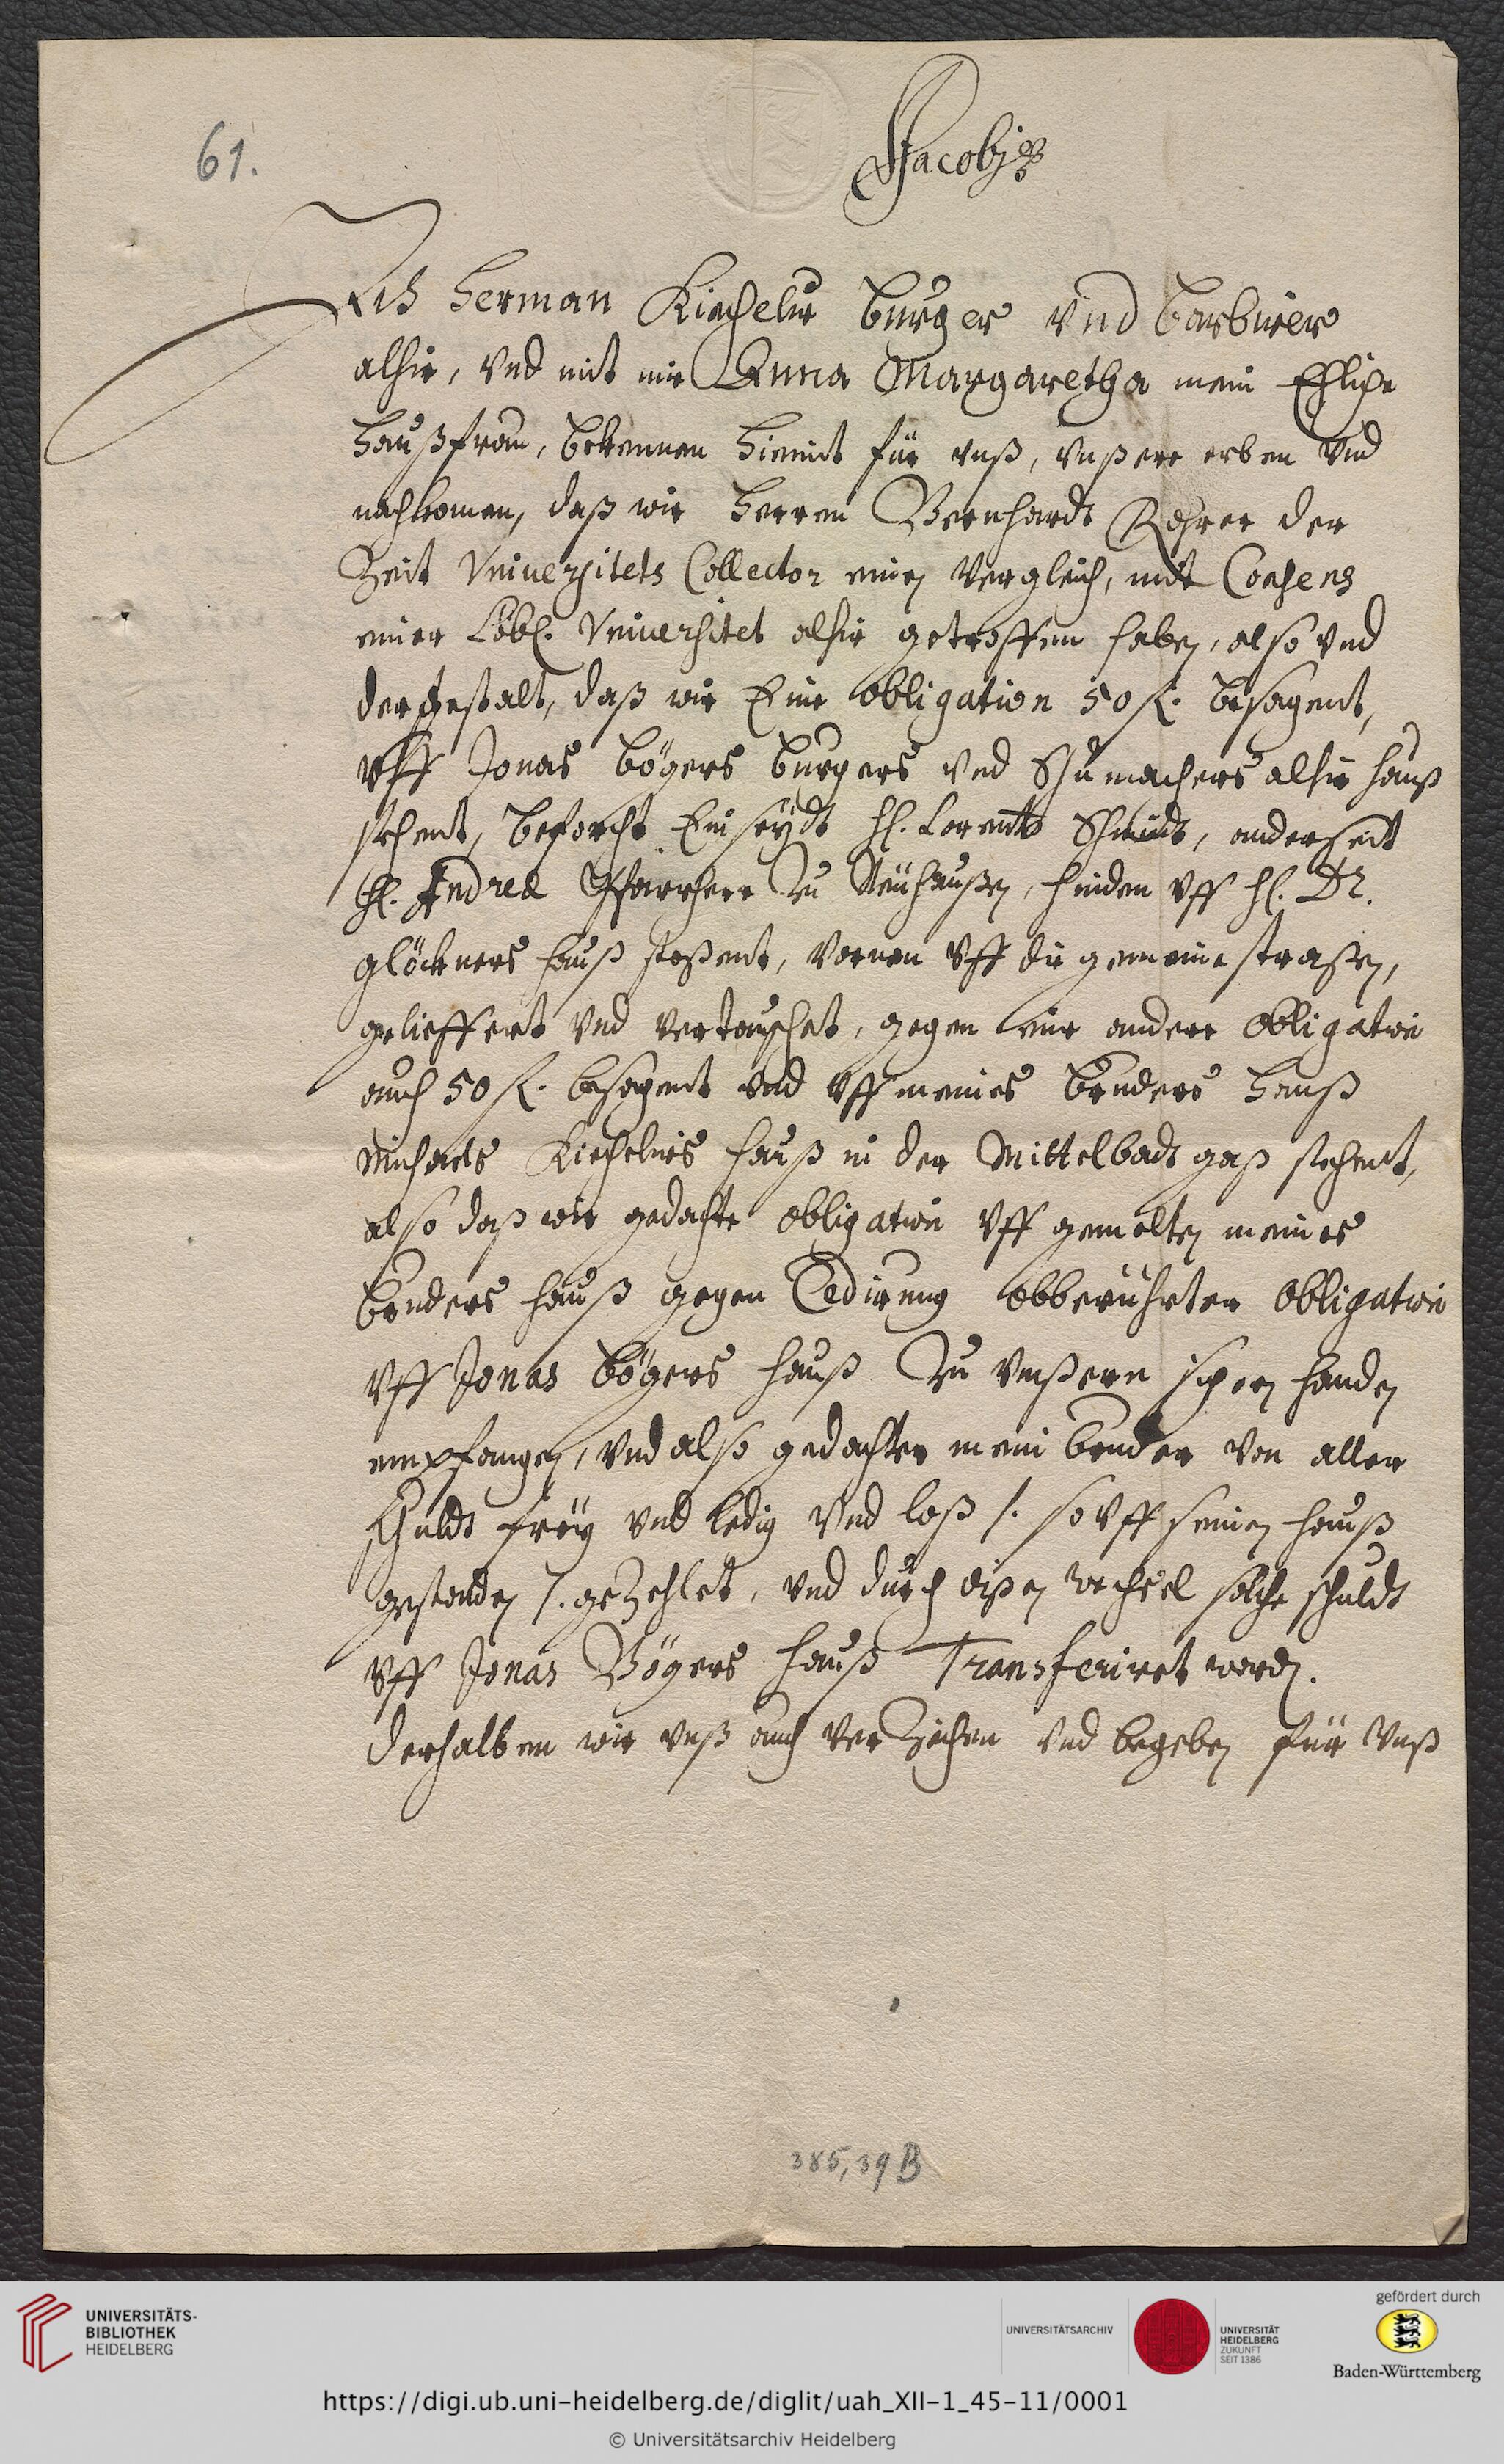 61.
Jacobj
Ich Herman Kirchelur burger vnd barbirer
alhir, vnd mit mir Anna Margaretha mein Ehliche
haußfraw, bekennen hiemit für vnß, vnßere erben vnd
nachkomen, daß wir Herren Bernhardt Rehrer der
Zeit Vniuersitets Collector einen vergleich, mit Consens
einer Löbl. Vniuersitet alhir getroffen haben, also vnd
dergestalt, daß wir Eine obligation 50 fl. besagent,
vff Jonas bögers burgers vnd Schumachers alhir hauß
stehent, beforcht Einseydt H. Lorentz Schmidt, anderseit
H. Andrea Pfarrherr Zu Neuhaußen, hinden vff H. Dr.
glöckners hauß stoßent, vornen vff die gemeine straßen,
gelieffert vnd vertauschet, gegen eine andere obligation
auch 50 fl. besagent vnd vff meines bruders Hanß
Michaels Kirchelurs hauß in der Mittelbadt gaß stehent,
also daß wir gedachte obligation vff gemelten meines
bruders hauß gegen Cedirung obberührter obligation
vff Jonas bögers hauß Zu vnßeren sichern handen
empfangen, vnd also gedachter mein bruder von aller
schuldt frey vnd ledig vnd loß /. so vff seinen hauß
gestanden /. geZehlet, vnd durch dißen wechsel solche schuldt
vff Jonas Bögers hauß Transferiret worden.
derhalben wir vnß auch verZiehen vnd begeben für vnß
385,39 B
UNIVERSITÄTS-
BIBLIOTHEK
HEIDELBERG
UNIVERSITÄTSARCHIV
UNIVERSITÄT
HEIDELBERG
ZUKUNFT
SEIT 1386
gefördert durch
Baden-Württemberg
https://digi.ub.uni-heidelberg.de/diglit/uah_XII-1_45-11/0001
© Universitätsarchiv Heidelberg